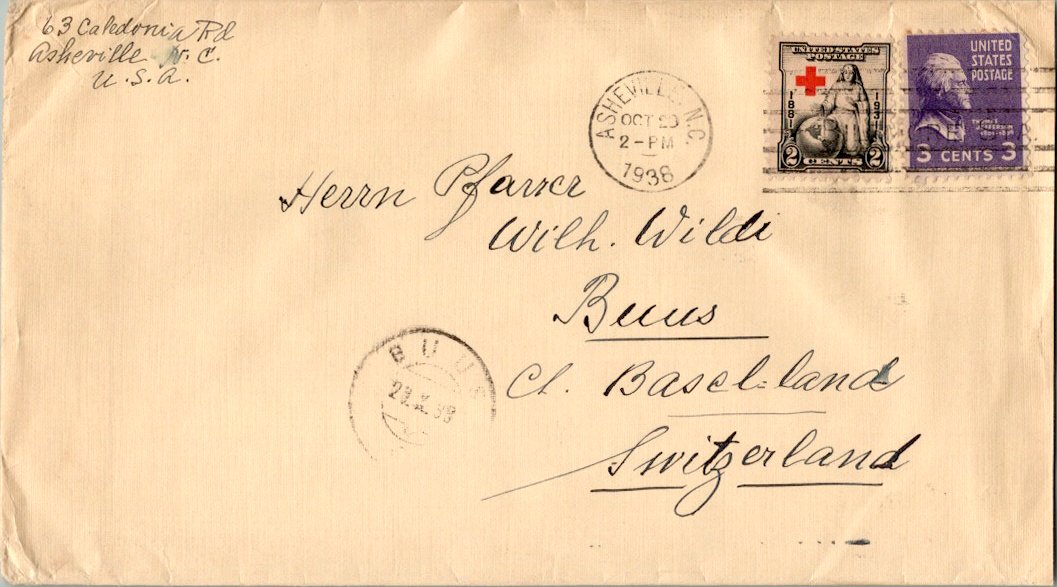 63 Caledonia Rd
Asheville N.C.
U.S.A.
ASHEVILLE, N.C.
OCT
2-PM
1938
UNITED STATES
POSTAGE
1881
1931
2 CENTS 2
UNITED
STATES
POSTAGE
THOMAS
JEFFERSON
3 CENTS 3
Herrn Pfarrer
Wilh. Wildi
Buus
Ct. Basel-land
Switzerland
BUUS
X.38